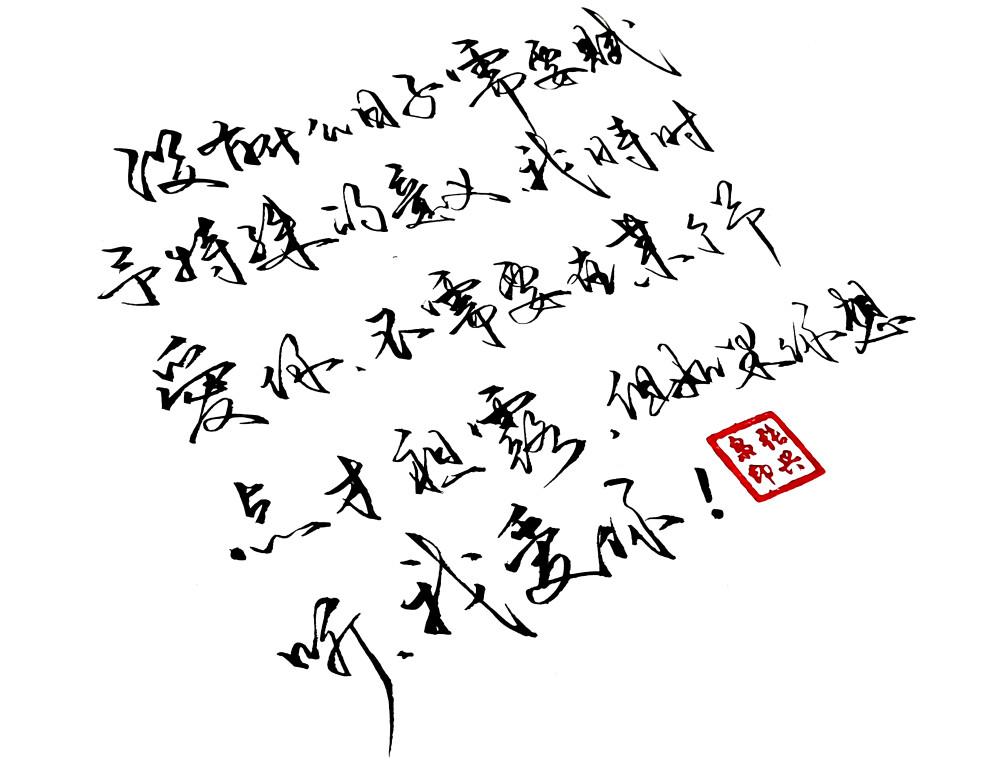 没有什么日子需要赋
予特殊的意义.我时时
爱你.不需要在某个节
点才袒露.但如果你想
听.我爱你!
张兴
印